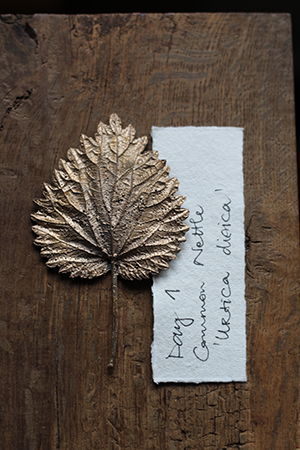 Day 1
Common Nettle
'Urtica dioica'